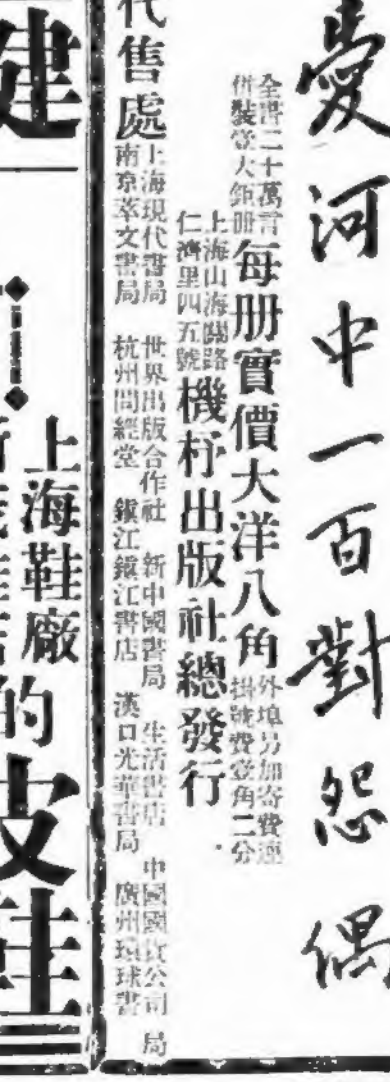 愛河中一百對怨偶
全書二十萬言
併裝壹大鉅册
每册實價大洋八角
外埠另加寄費連
掛號費壹角二分
上海山海關路
仁濟里四五號
機杼出版社總發行
代售處
上海現代書局 世界出版合作社 新中國書局 生活書店 中國國貨公司
南京萃文書局 杭州問經堂 鎮江鎮江書店 漢口光華書局 廣州環球書局
上海鞋廠
的皮鞋
健